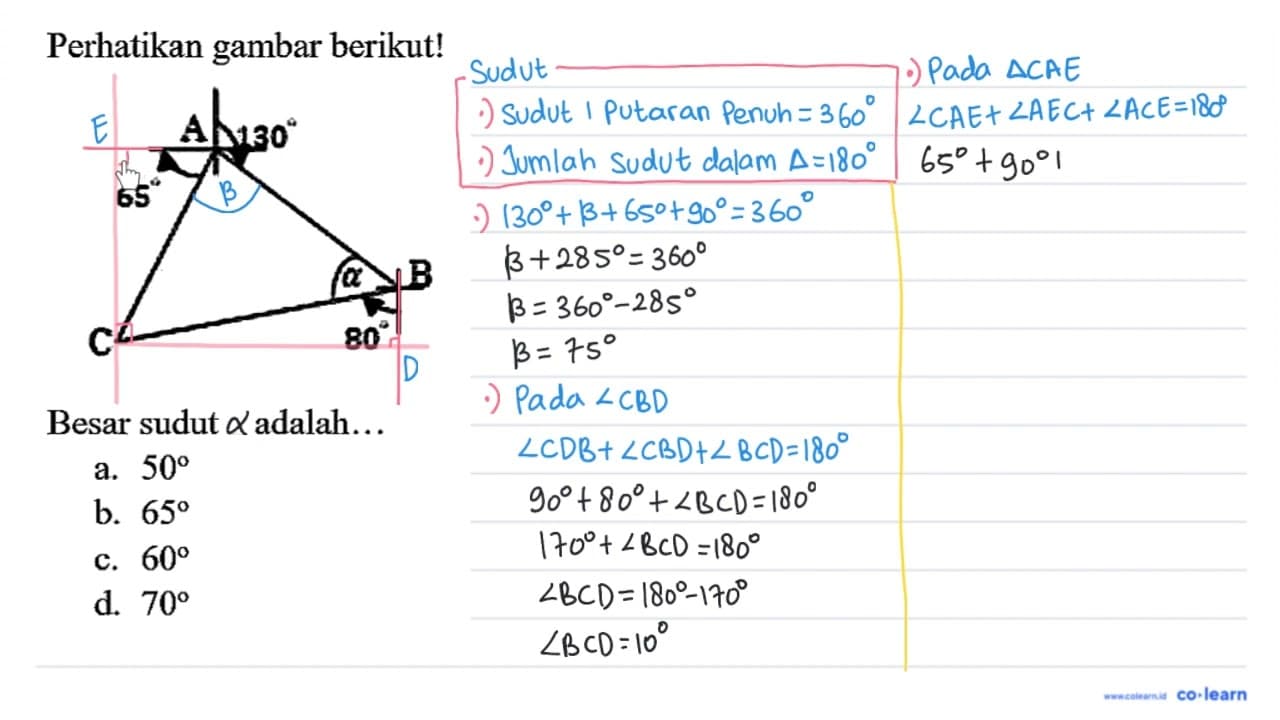 Perhatikan gambar berikut!
E
A
130°
65°
β
α
B
C
80°
D
Besar sudut α adalah...
a. 50°
b. 65°
c. 60°
d. 70°
Sudut
•) Sudut 1 Putaran Penuh = 360°
•) Jumlah Sudut dalam Δ = 180°
•) 130° + β + 65° + 90° = 360°
β + 285° = 360°
β = 360° - 285°
β = 75°
•) Pada ∠CBD
∠CDB + ∠CBD + ∠BCD = 180°
90° + 80° + ∠BCD = 180°
170° + ∠BCD = 180°
∠BCD = 180° - 170°
∠BCD = 10°
•) Pada ΔCAE
∠CAE + ∠AEC + ∠ACE = 180°
65° + 90° 1
www.colearn.id co·learn